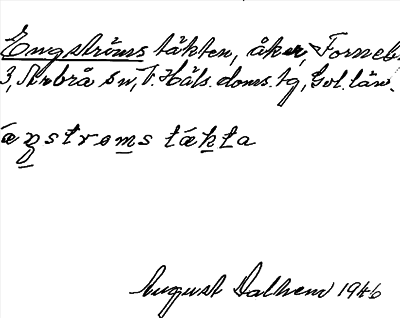 Engströms täkten, åker, Forneb
3, Arbrå sn, V. Häls. doms. tg, Gvl. län.
äŋstroms täkta
August Dalhem 1946